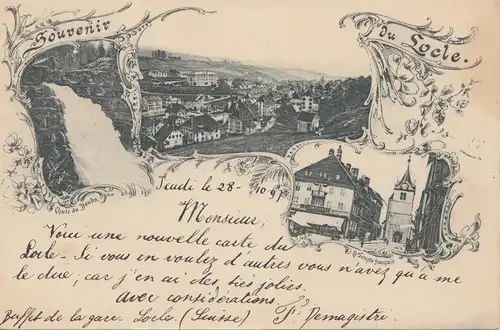 Souvenir
Du Locle.
Chute du Doubs
Le Temple français
Jeudi le 28-10 97
Monsieur,
Voici une nouvelle carte du
Locle - Si vous en voulez d'autres vous n'avez qu'a me
le dire, car j'en ai des très jolies.
Avec considérations.
Buffet de la gare Locle (Suisse) F. Demagistri